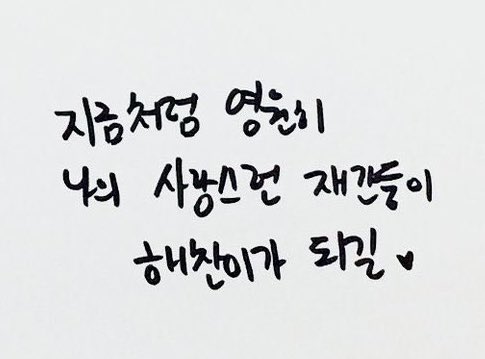 지금처럼 영원히
나의 사랑스런 재간둥이
해찬이가 되길 ♥